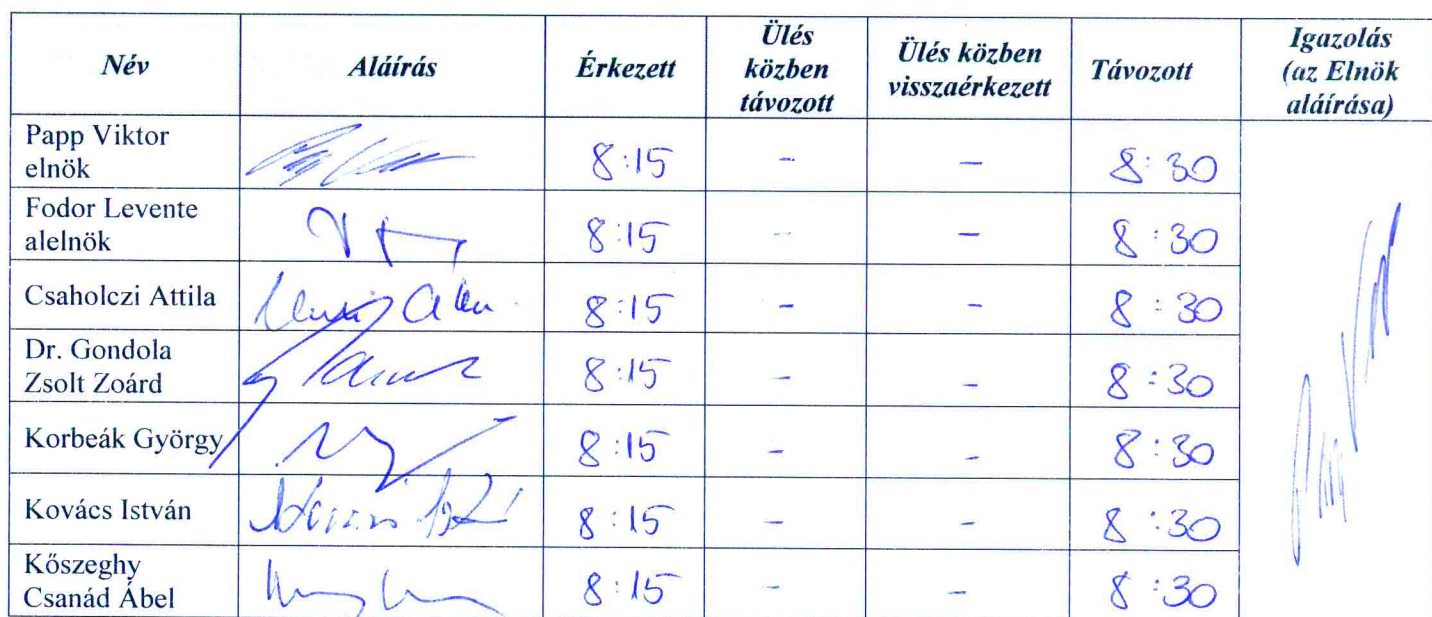 Név Aláírás Érkezett Ülés közben távozott Ülés közben visszaérkezett Távozott Igazolás (az Elnök aláírása)
Papp Viktor elnök 8:15 - - 8:30
Fodor Levente alelnök 8:15 - - 8:30
Csaholczi Attila 8:15 - - 8:30
Dr. Gondola Zsolt Zoárd 8:15 - - 8:30
Korbeák György 8:15 - - 8:30
Kovács István 8:15 - - 8:30
Kőszeghy Csanád Ábel 8:15 - - 8:30